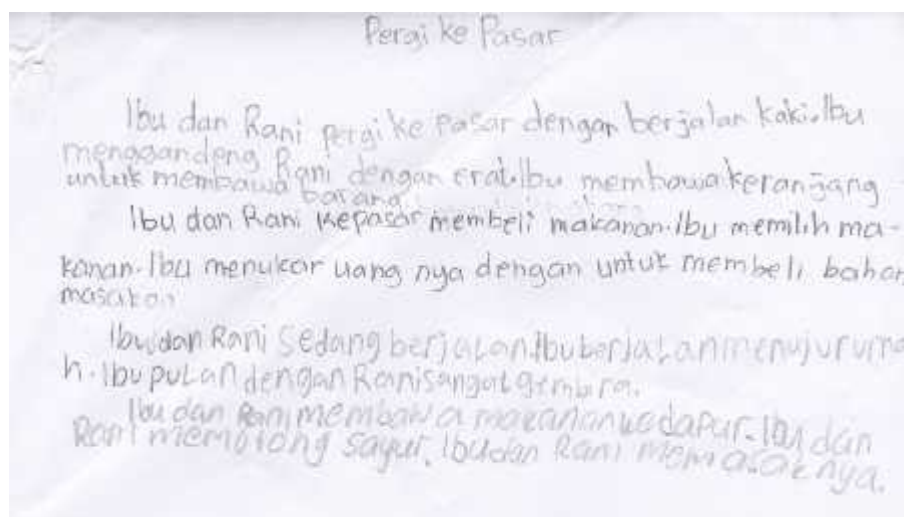 Pergi ke Pasar
Ibu dan Rani pergi ke Pasar dengan berjalan kaki. Ibu
menggandeng Rani dengan erat. Ibu membawa keranjang
untuk membawa barang
Ibu dan Rani kepasar membeli makanan. Ibu memilih ma-
kanan. Ibu menukar uang nya dengan untuk membeli bahan
masakan
Ibu dan Rani Sedang berjalan. Ibu berjalan menuju ruma
h. Ibu pulan dengan Rani sangat gembira.
Ibu dan Rani membawa makanan ke dapur. Ibu dan
Rani memotong sayur. Ibu dan Rani memasaknya.